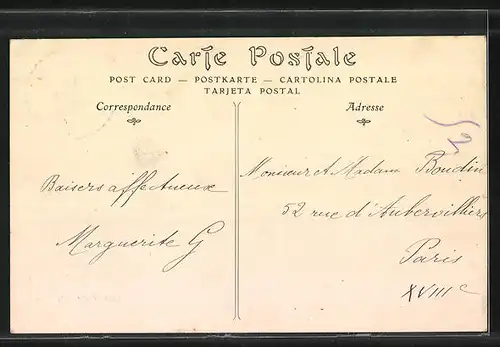 Carte Postale
POST CARD — POSTKARTE — CARTOLINA POSTALE
TARJETA POSTAL
Correspondance
Adresse
Baisers affectueux
Marguerite G
Monsieur et Madam Boudin
52 rue d'Aubervilliers
Paris
XVIIIe